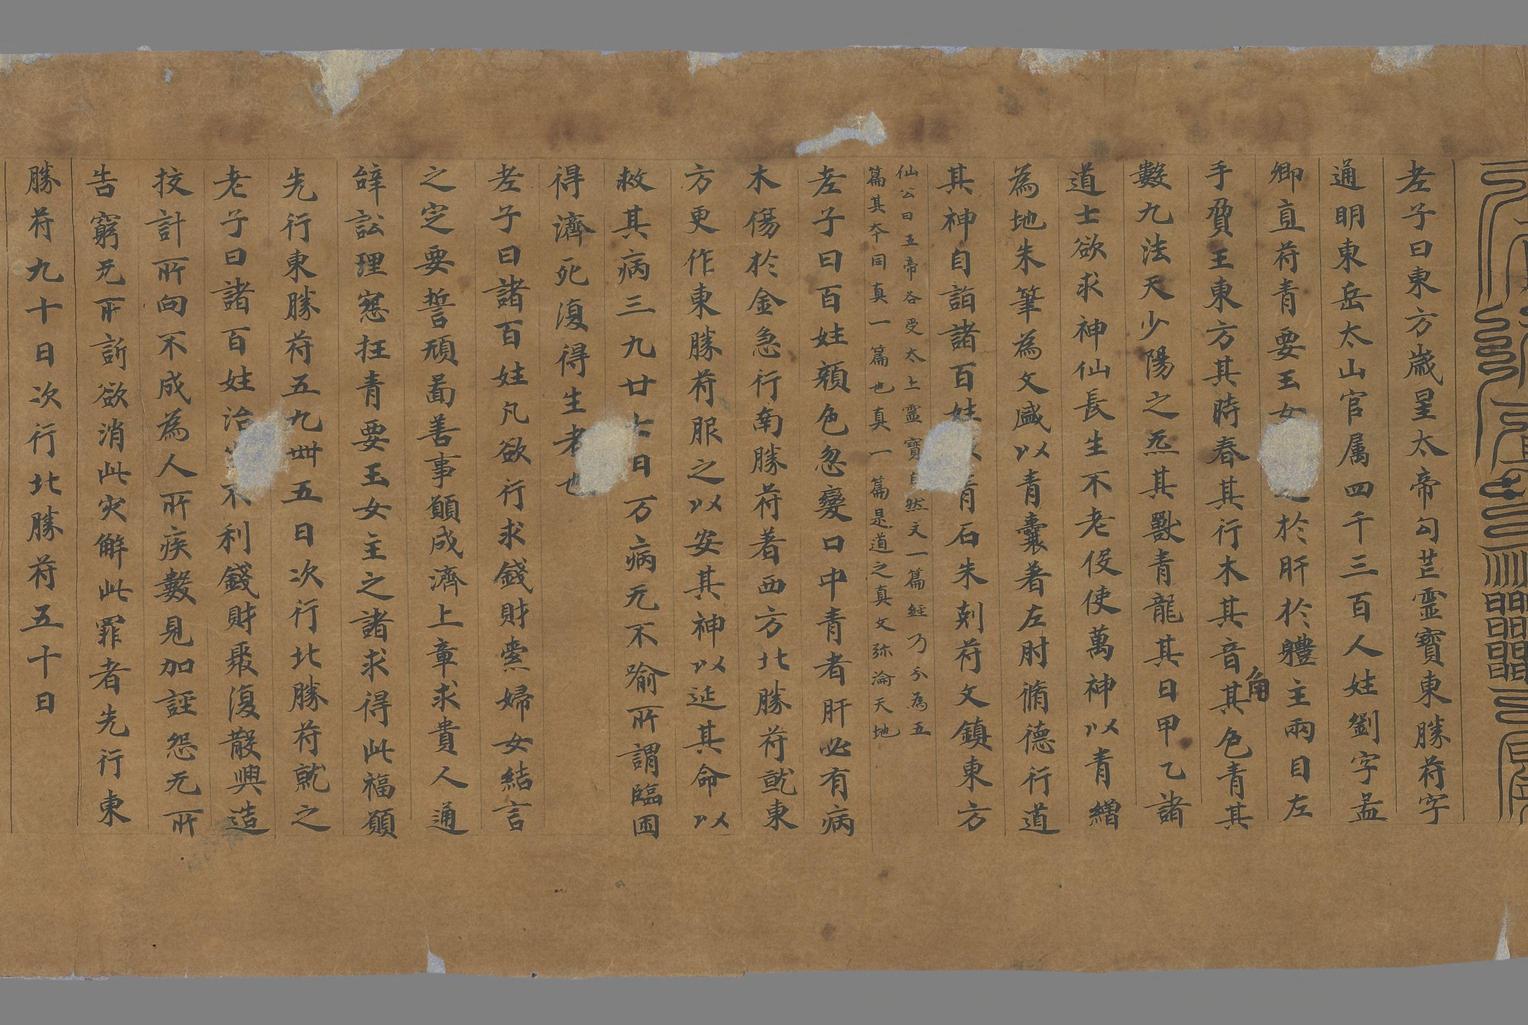 老子曰東方歲星太帝勾芒靈寶東勝符字
通明東岳太山官属四千三百人姓劉字孟
卿直符青要玉女於肝於軆主兩目左
手賀主東方其時春其行木其音角其色青其
數九法天少陽之炁其獸青龍其日甲乙諸
道士欲求神仙長生不老伇使萬神以青繒
為地朱筆為文盛以青囊著左肘脩德行道
其神自詣諸百姓青石朱刻符文鎮東方
仙公曰五帝各受太上靈寶自然文一篇經乃分為五
篇其夲同真一篇也真一篇是道之真文弥淪天地
老子曰百姓顏色忽變口中青者肝必有病
木傷於金急行南勝符著西方北勝符就東
方更作東勝符服之以安其神以延其命以
救其病三九廿七日万病无不瑜所謂臨困
得濟死復得生者也
老子曰諸百姓凡欲行求錢財索婦女結言
之定要誓頑啚善事願成濟上章求貴人通
辝訟理𡨚抂青要玉女主之諸求得此福願
先行東勝符五九卌五日次行北勝符就之
老子曰諸百姓治不利錢財聚復散興造
挍計所向不成為人所疾數見加誣怨无所
告窮无所訢欲消此灾解此罪者先行東
勝符九十日次行北勝符五十日